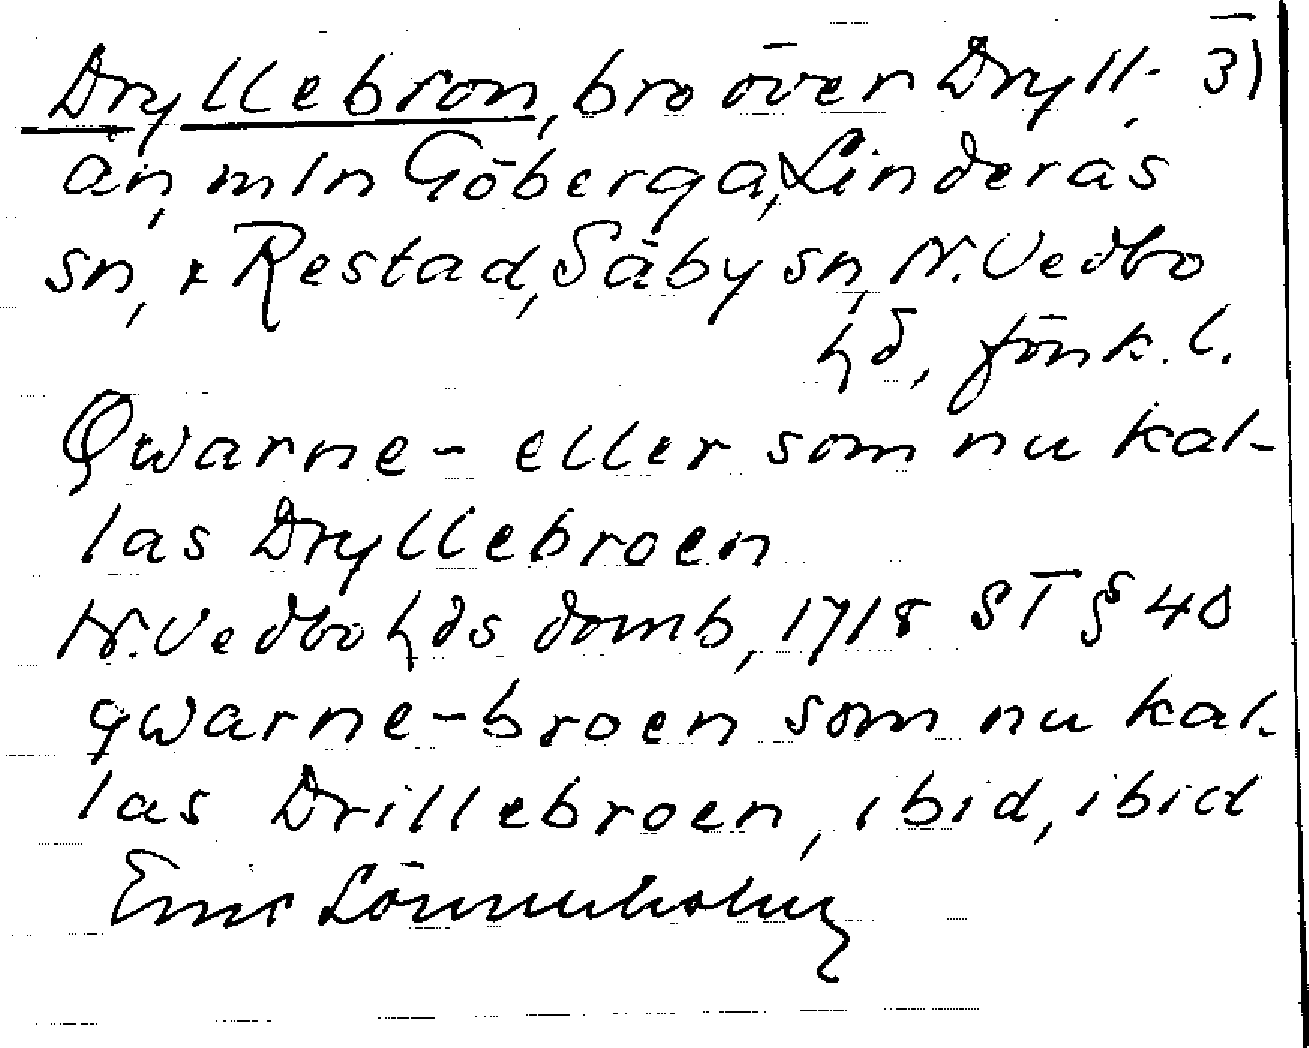 Dryllebron, bro över Dryll- 3)
ån, mln Göberga, Linderås
sn, x Restad, Säby sn, N. Vedbo
hd, Jönk. l.
Qwarne- eller som nu kal-
las Dryllebroen
N. Vedbo hds domb, 1718 ST § 40
qwarne-broen som nu kal-
las Drillebroen, ibid, ibid
Einar Lönnerholm